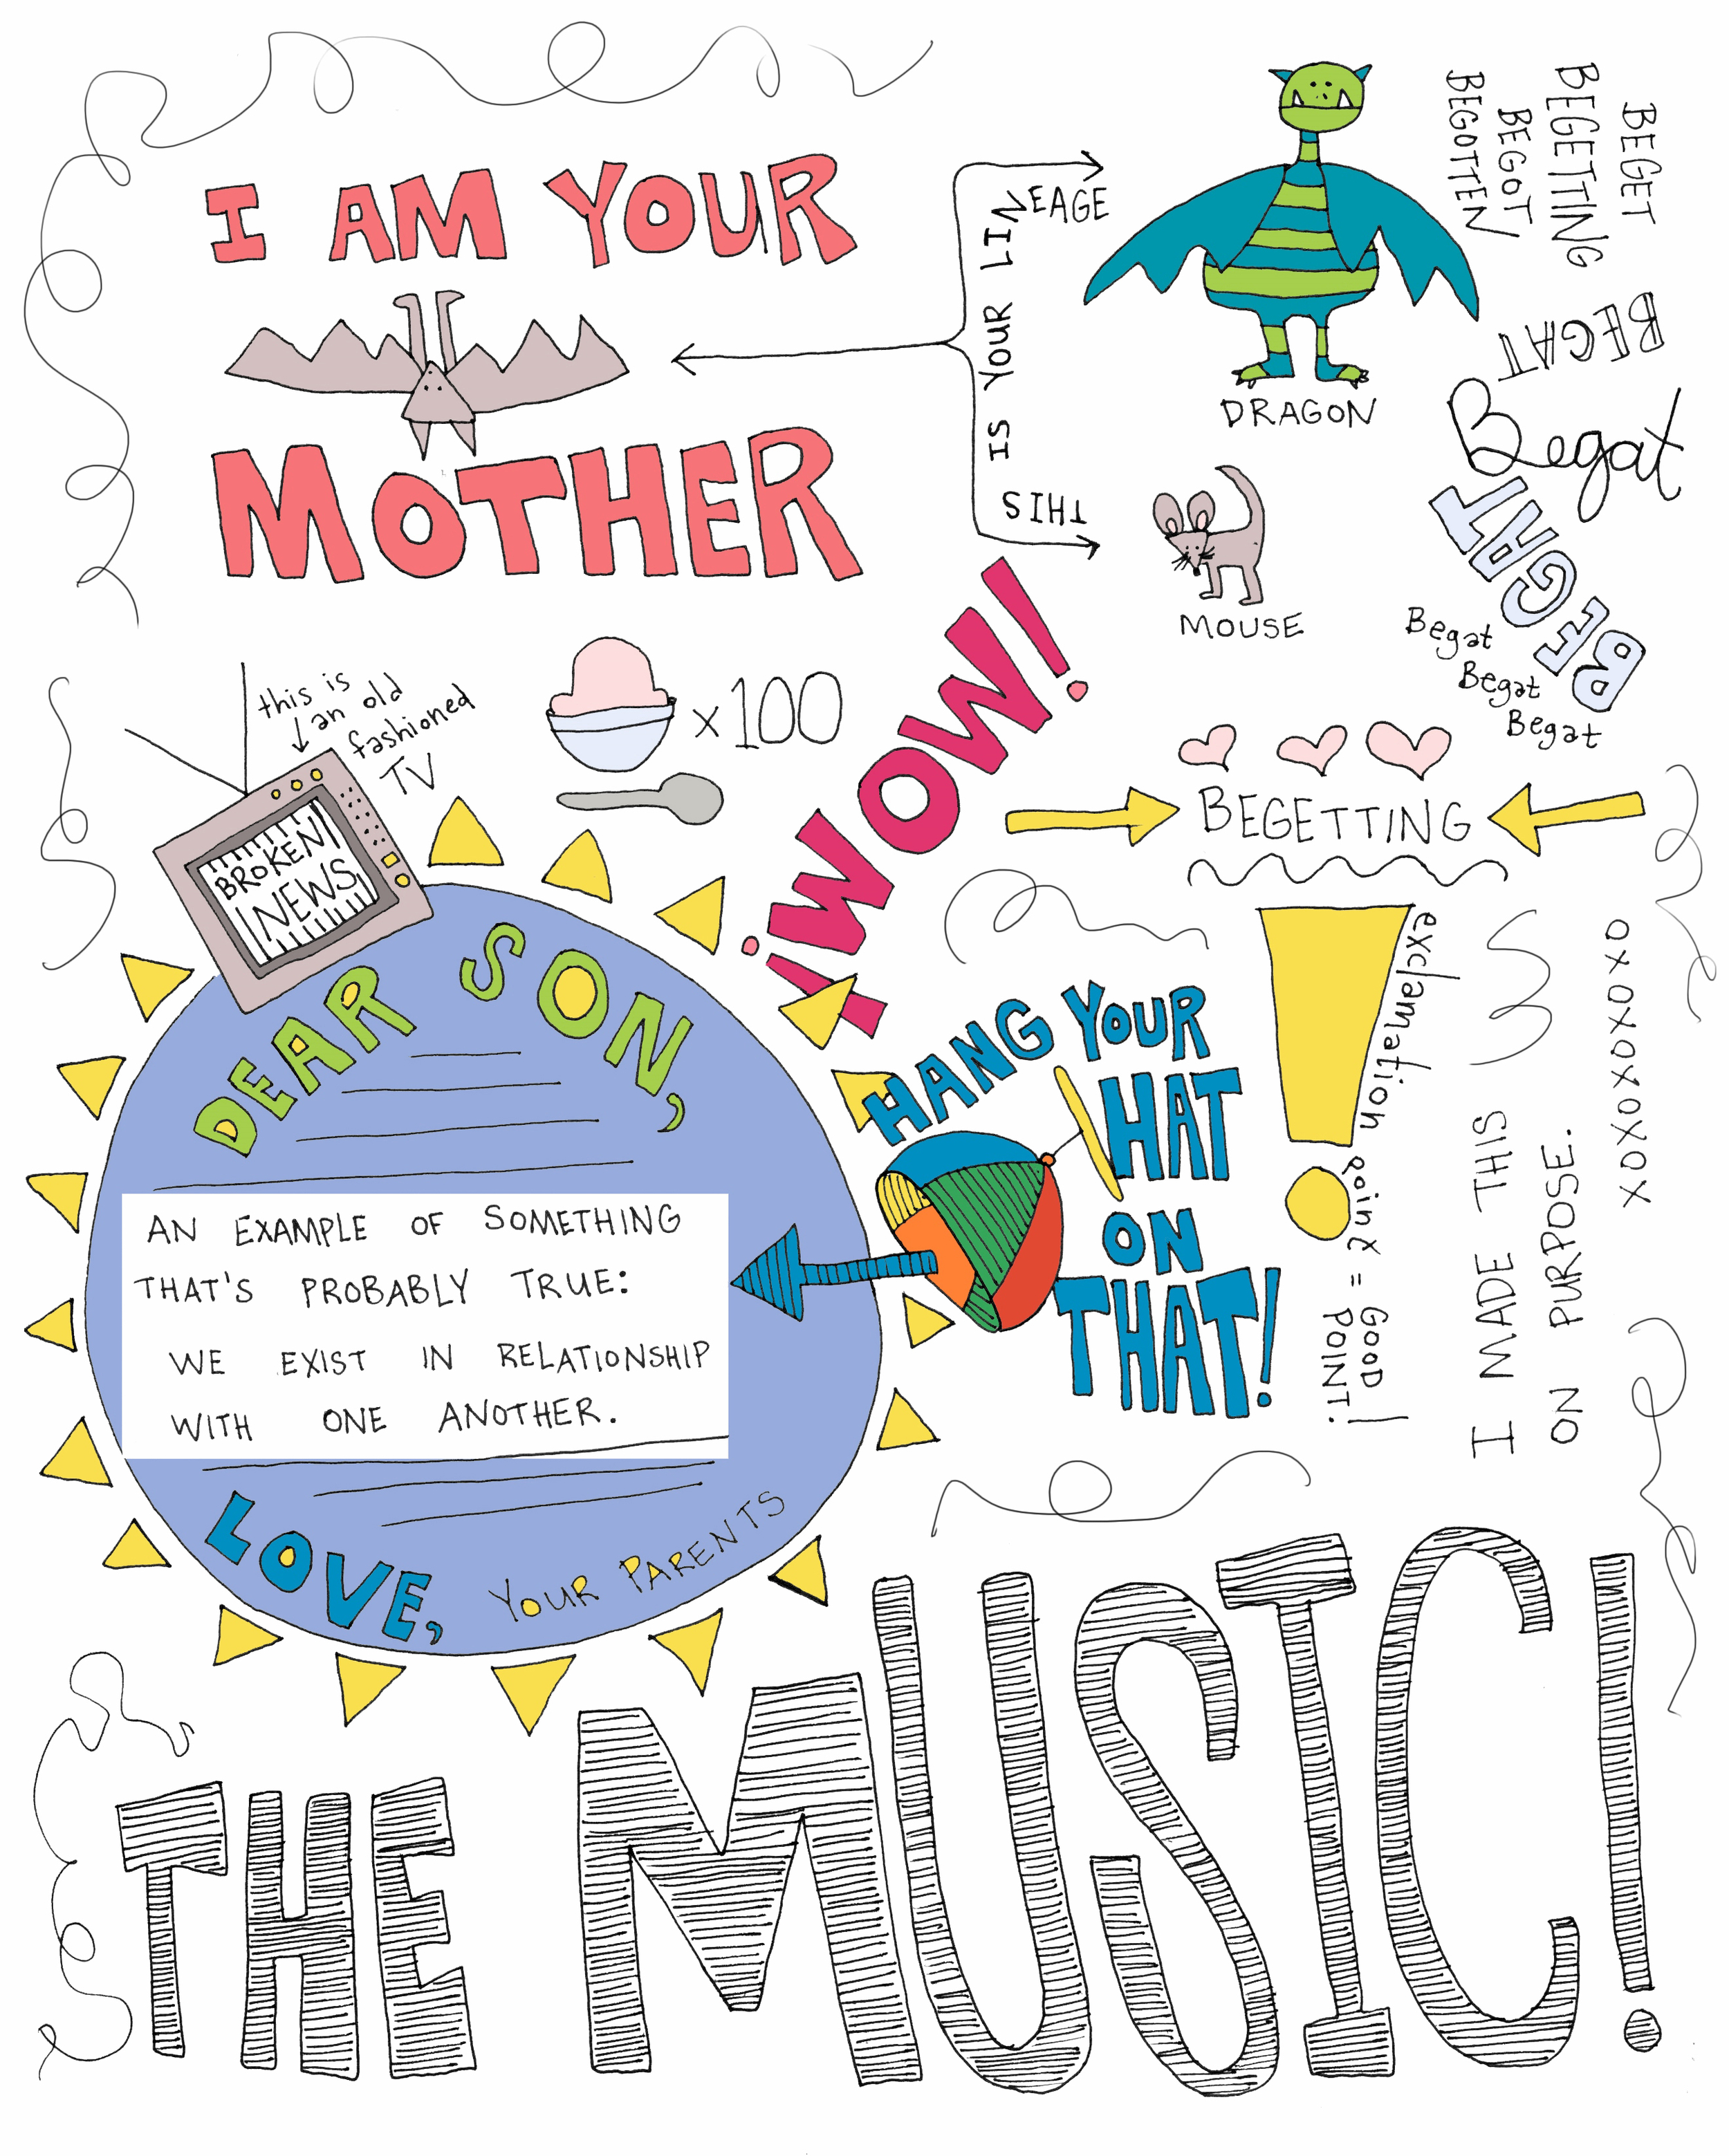 I AM YOUR
MOTHER
THIS IS YOUR LINEAGE
DRAGON
MOUSE
BEGET
BEGETTING
BEGOT
BEGOTTEN
BEGAT
Begat
BEGAT
Begat
Begat
Begat
this is
an old
fashioned
TV
BROKEN
NEWS
x 100
¡WOW!
BEGETTING
DEAR SON,
AN EXAMPLE OF SOMETHING
THAT'S PROBABLY TRUE:
WE EXIST IN RELATIONSHIP
WITH ONE ANOTHER.
LOVE, YOUR PARENTS
HANG YOUR
HAT
ON
THAT!
exclamation point = GOOD
POINT!
I MADE THIS
ON PURPOSE.
XOXOXOXOXO
THE MUSIC!